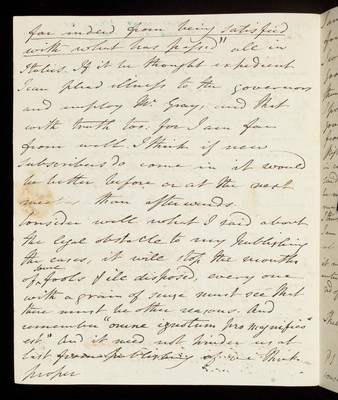 far indeed from being satisfied
with what has passed" all in
Italics. If it be thought expedient
I can plead illness to the governors
and employ Mr. Gray; and that
with truth too: for I am far
from well. I think if new
subscribers do come in it would
be better before or at the next
meeting than afterwards.
Consider well what I said about
the legal obstacle to my publishing
the cases, it will stop the mouths
of some fools & ill disposed, every one
with a grain of sense must see that
there must be other reasons. And
remember "omne ignotum pro magnifico
est". And it need not hinder us at
last from publishing if we think
proper